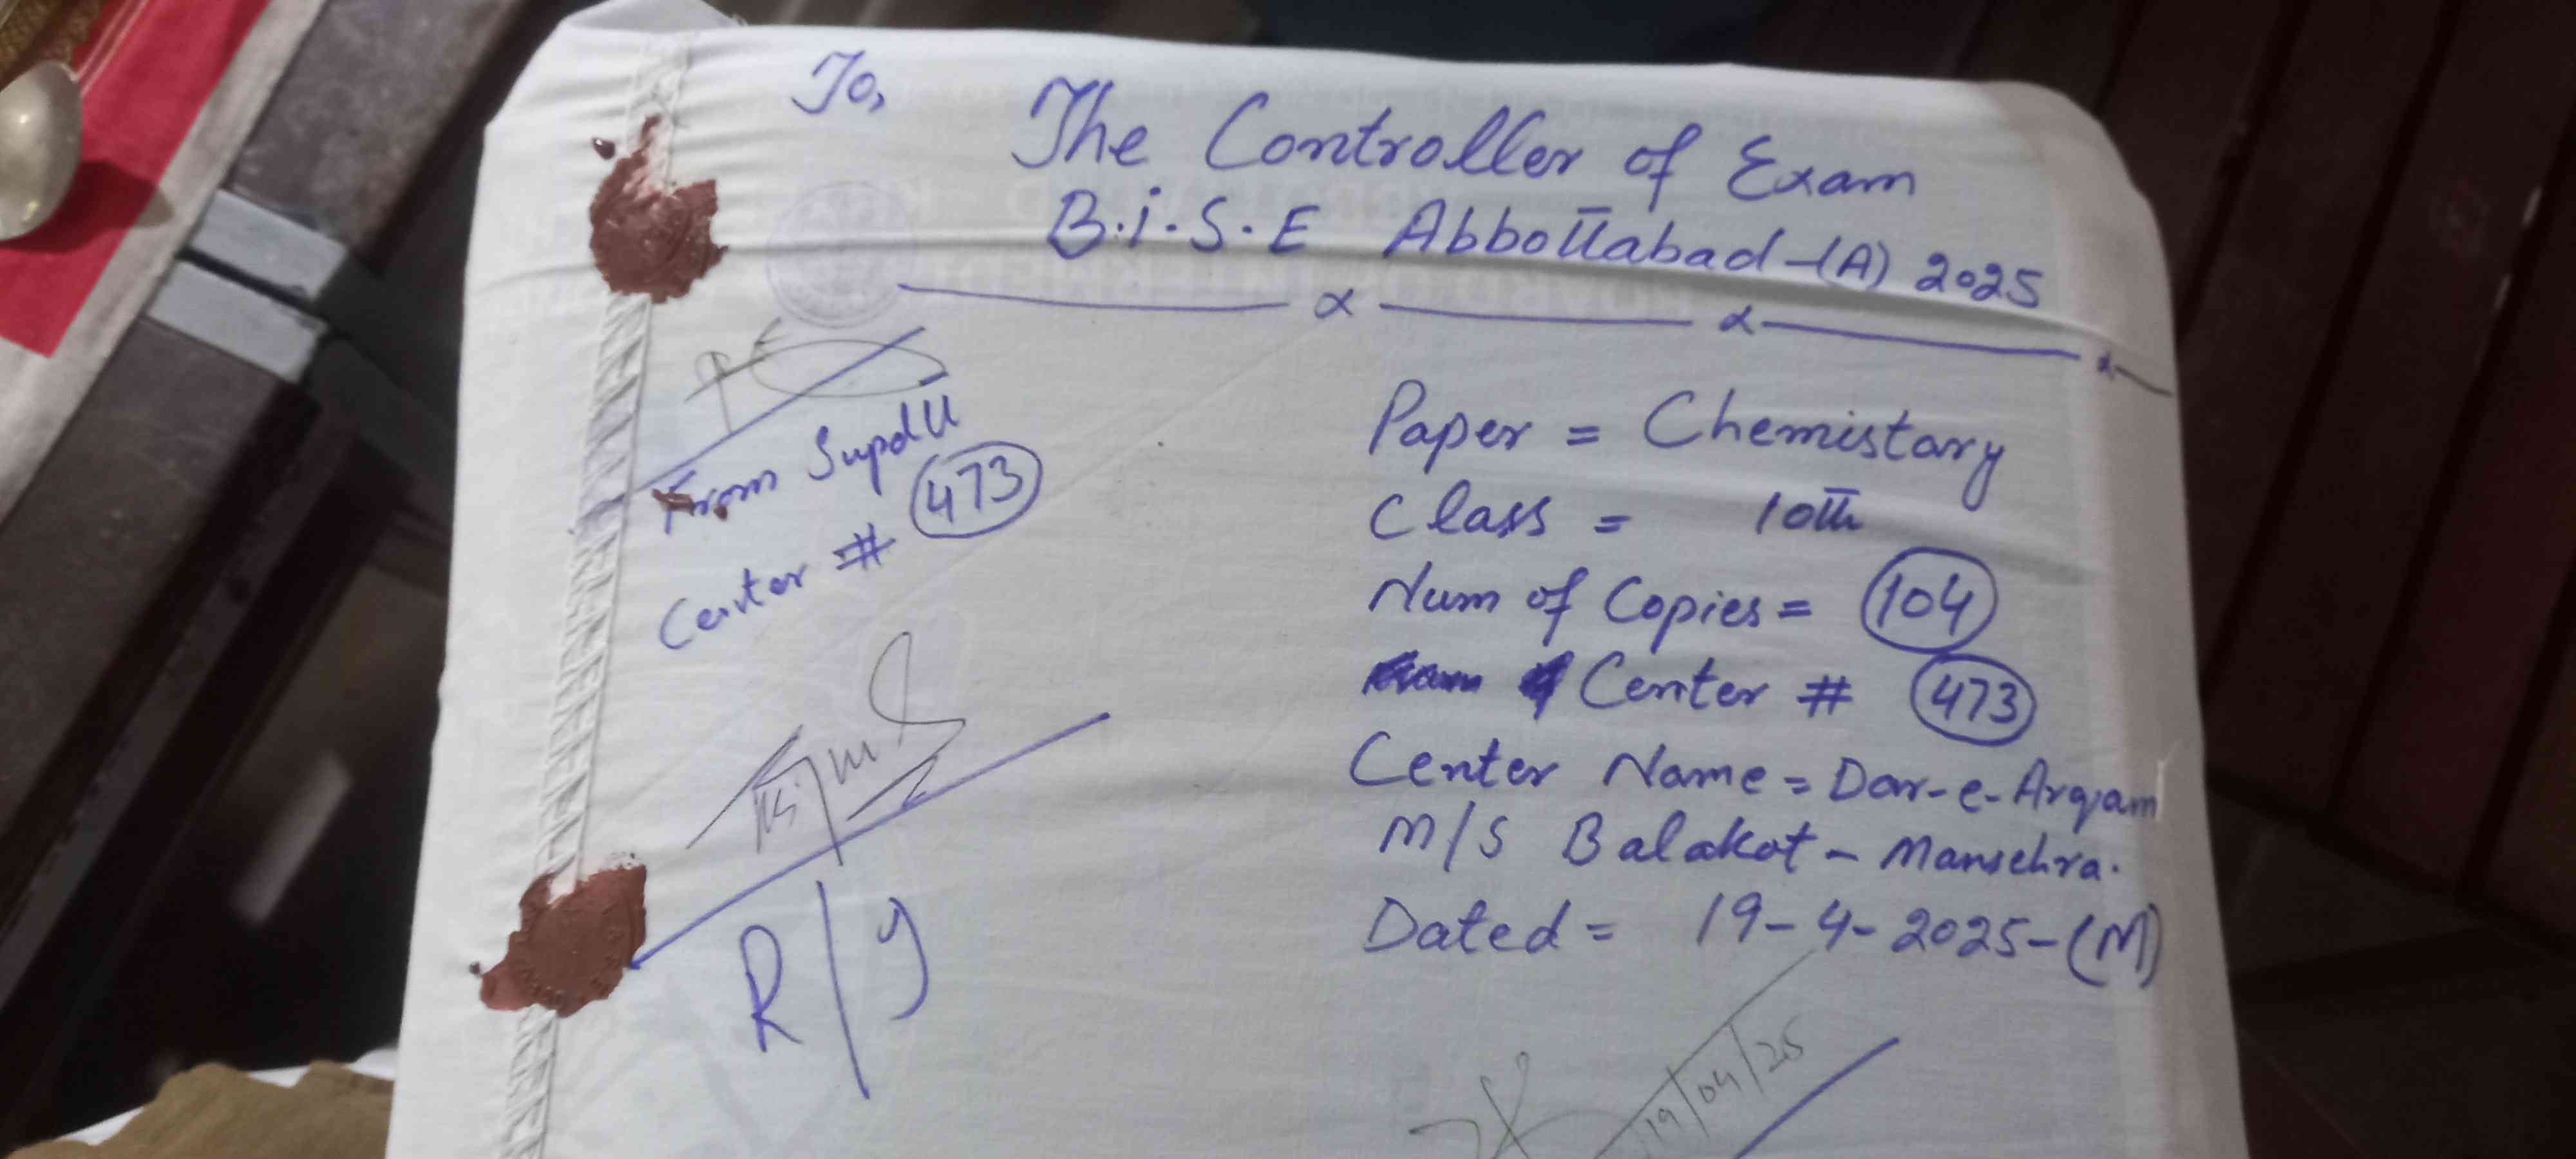 To,
The Controller of Exam
B.i.S.E Abbottabad-(A) 2025
From Supdtt
Center # 473
R/g
Paper = Chemistary
Class = 10th
Num of Copies = 104
Center # 473
Center Name = Dar-e-Arqam
M/S Balakot - Mansehra.
Dated = 19-4-2025-(M)
19/04/25